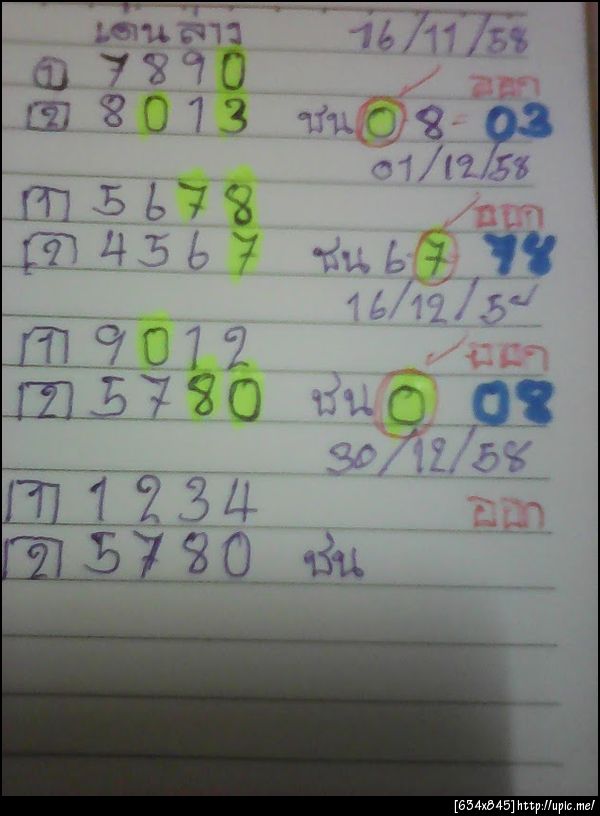 เด่นล่าง 16/11/58
1 7890 ออก
2 8013 ชน 08 - 03
01/12/58
1 5678 ออก
2 4567 ชน 6-7 78
16/12/58
1 9012 ออก
2 5780 ชน 0 08
30/12/58
1 1234 ออก
2 5780 ชน
[634x845]http://upic.me/